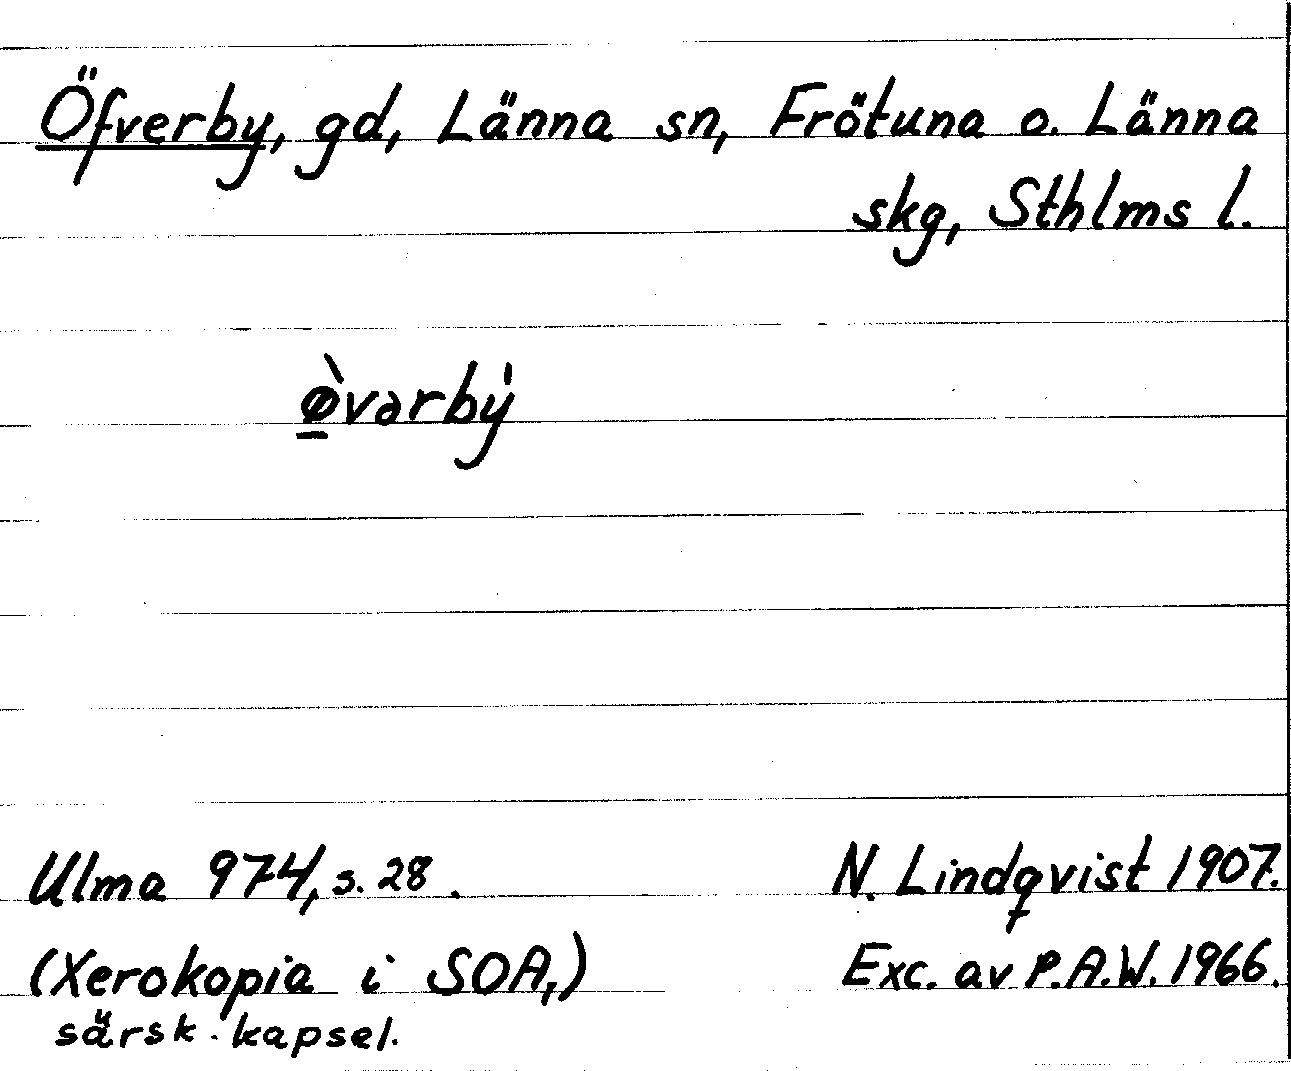 Öfverby, gd, Länna sn, Frötuna o. Länna
skg, Sthlms l.
ø̱̀vərbẏ
Ulma 974, s. 28. N. Lindqvist 1907.
(Xerokopia i SOA,) Exc. av P.A.W. 1966.
särsk. kapsel.